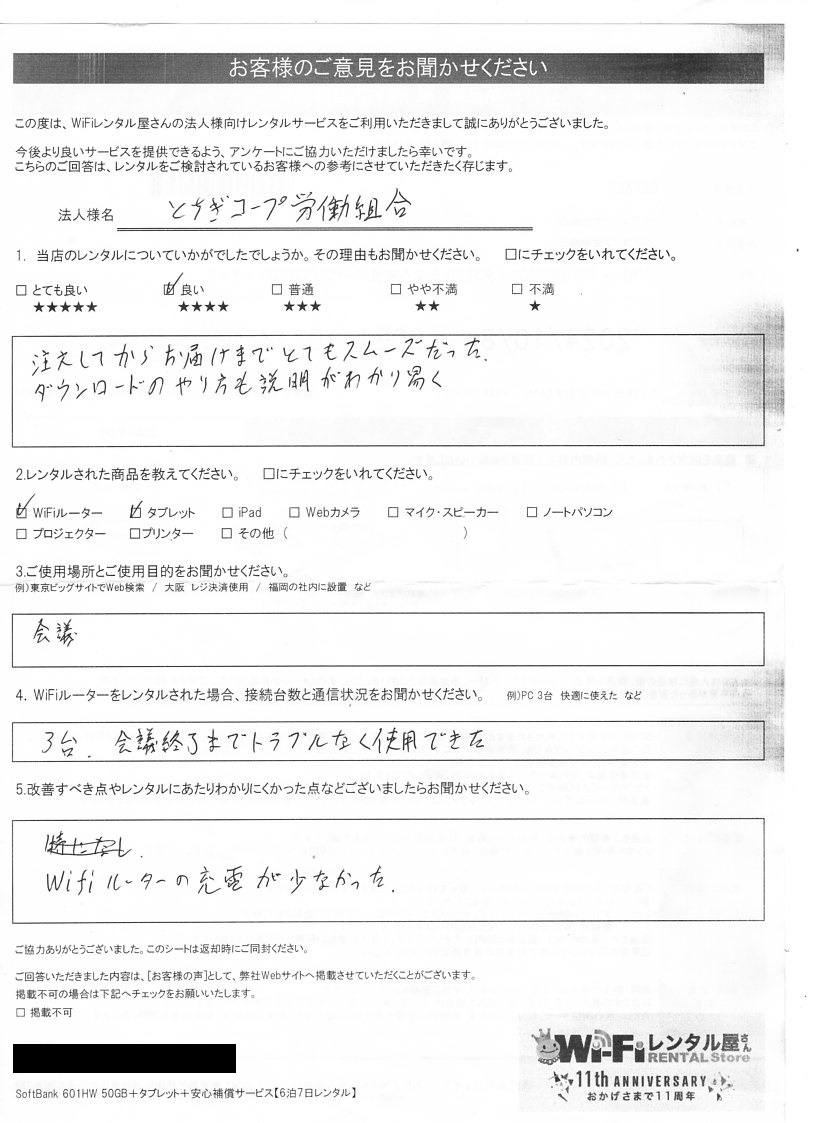 お客様のご意見をお聞かせください
この度は、WiFiレンタル屋さんの法人様向けレンタルサービスをご利用いただきまして誠にありがとうございました。
今後より良いサービスを提供できるよう、アンケートにご協力いただけましたら幸いです。
こちらのご回答は、レンタルをご検討されているお客様への参考にさせていただきたく存じます。
法人様名 とちぎコープ労働組合
1. 当店のレンタルについていかがでしたでしょうか。その理由もお聞かせください。 □にチェックをいれてください。
□ とても良い ☑ 良い □ 普通 □ やや不満 □ 不満
★★★★★ ★★★★ ★★★ ★★ ★
注文してからお届けまでとてもスムーズだった.
ダウンロードのやり方も説明がわかり易く
2.レンタルされた商品を教えてください。 □にチェックをいれてください。
☑ WiFiルーター ☑ タブレット □ iPad □ Webカメラ □ マイク・スピーカー □ ノートパソコン
□ プロジェクター □プリンター □ その他 ( )
3.ご使用場所とご使用目的をお聞かせください。
例)東京ビッグサイトでWeb検索 / 大阪 レジ決済使用 / 福岡の社内に設置 など
会議
4. WiFiルーターをレンタルされた場合、接続台数と通信状況をお聞かせください。 例)PC 3台 快適に使えた など
3台. 会議終了までトラブルなく使用できた
5.改善すべき点やレンタルにあたりわかりにくかった点などございましたらお聞かせください。
特になし.
Wifiルーターの充電が少なかった.
ご協力ありがとうございました。このシートは返却時にご同封ください。
ご回答いただきました内容は、[お客様の声]として、弊社Webサイトへ掲載させていただくことがございます。
掲載不可の場合は下記へチェックをお願いいたします。
□ 掲載不可
Wi-Fiレンタル屋さん
RENTAL Store
11th ANNIVERSARY
おかげさまで11周年
SoftBank 601HW 50GB＋タブレット＋安心補償サービス【6泊7日レンタル】